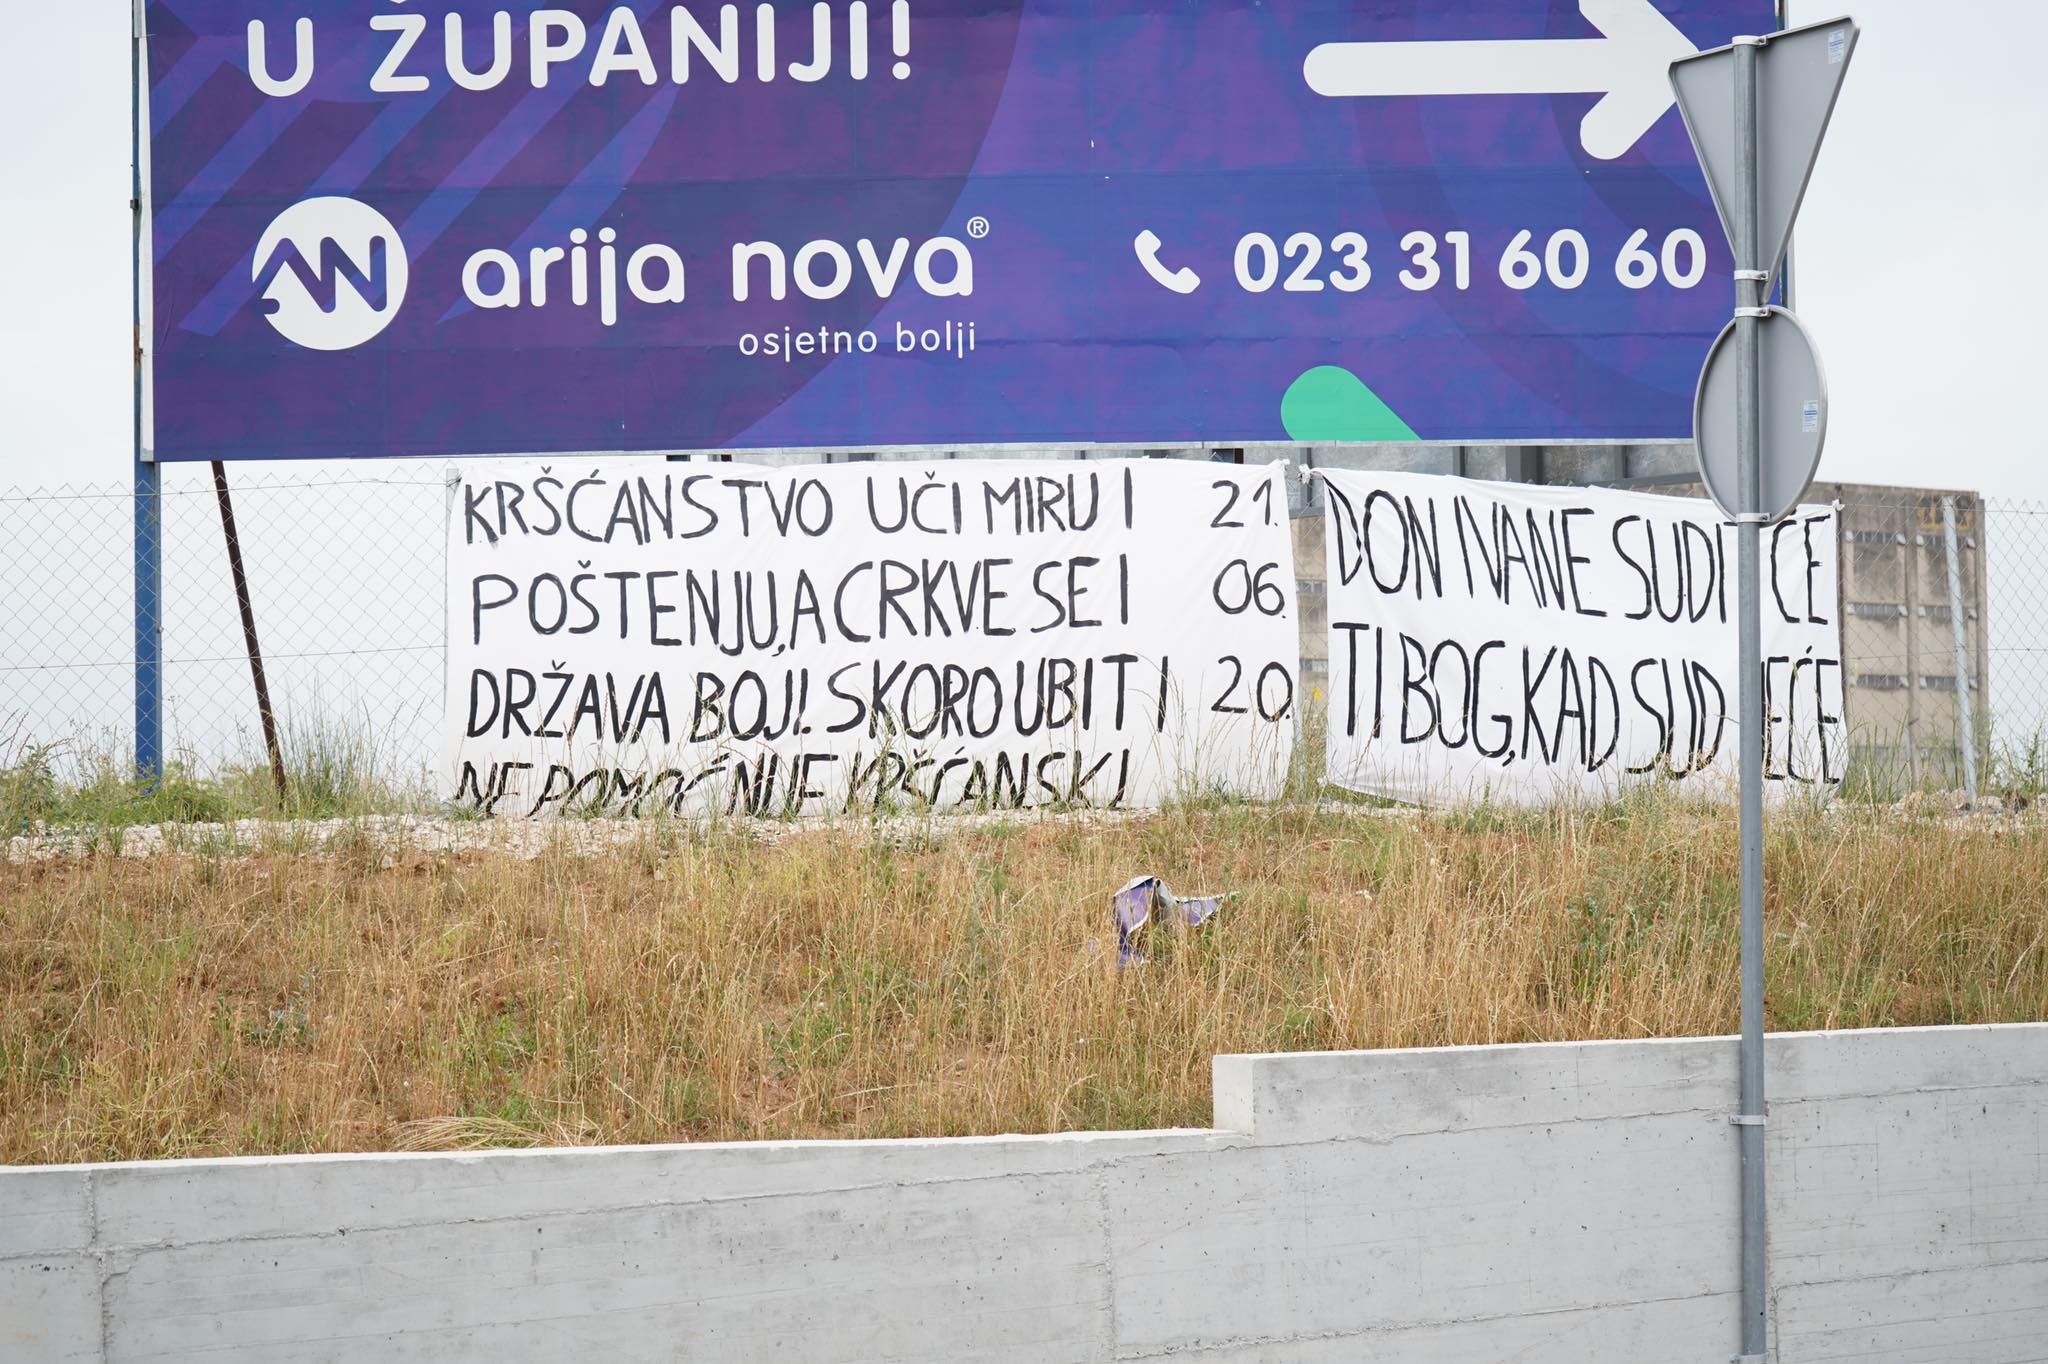 U ŽUPANIJI!
arija nova®
osjetno bolji
023 31 60 60
KRŠĆANSTVO UČI MIRU I
POŠTENJU, A CRKVE SE I
DRŽAVA BOJI. SKORO UBITI
NEPOMOĆNIJE KRŠĆANSKI
21.
06.
20.
DON IVANE SUDIT ĆE
TI BOG, KAD SUD NEĆE